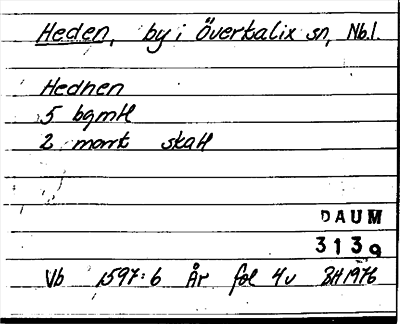 Heden, by i Överkalix sn, Nb.l.
Hednen
5 bgmtl
2 mark skatt
DAUM
3139
Vb 1597:6 År fol 4v BH 1976